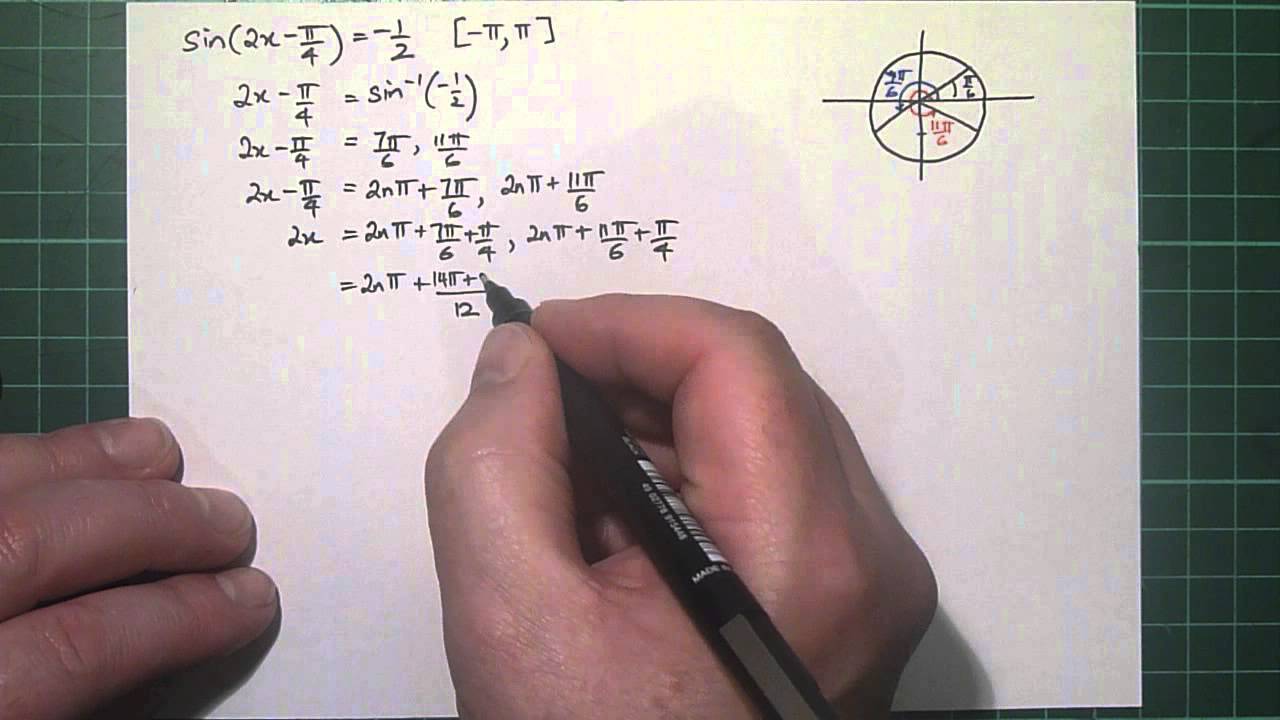 sin(2x - π/4) = -1/2 [-π, π]
2x - π/4 = sin⁻¹(-1/2)
2x - π/4 = 7π/6, 11π/6
2x - π/4 = 2nπ + 7π/6, 2nπ + 11π/6
2x = 2nπ + 7π/6 + π/4, 2nπ + 11π/6 + π/4
= 2nπ + 14π+/12
7π/6
π/6
11π/6
MADE